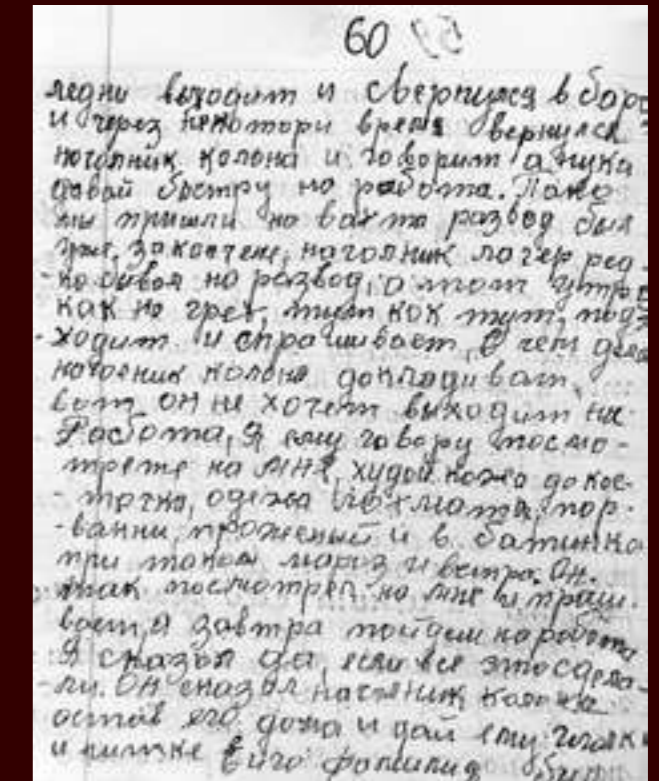 60
ледни выходит и свернулся в бар
и через некотори время вернулся
ночолник колона и говорит а нука
довай быстру но работа. Пако
мы пришли но вахта развод был
уже законтене, ночолник лагер ред-
ко бывоя но развод, о тот утро
как но грех, тут как тут, подэ
ходит и спрашивает, О чем дела
ночолник колона докладиват,
вот он не хочет выходит на
Работа, Я ему говору посмо-
трете на мня, худой кожа до кос-
точко, одежа лохмота, пор-
ванни, проженый и в батинка
при таком мароз и ветра. Он
так посмотрел но мне и праши.
вает, а завтра пойдеш на робота
Я сказал да, если все это сдела-
ли. Он сказал начолник колона
остав его дома и дай ему иголки
и нитке его фамилия